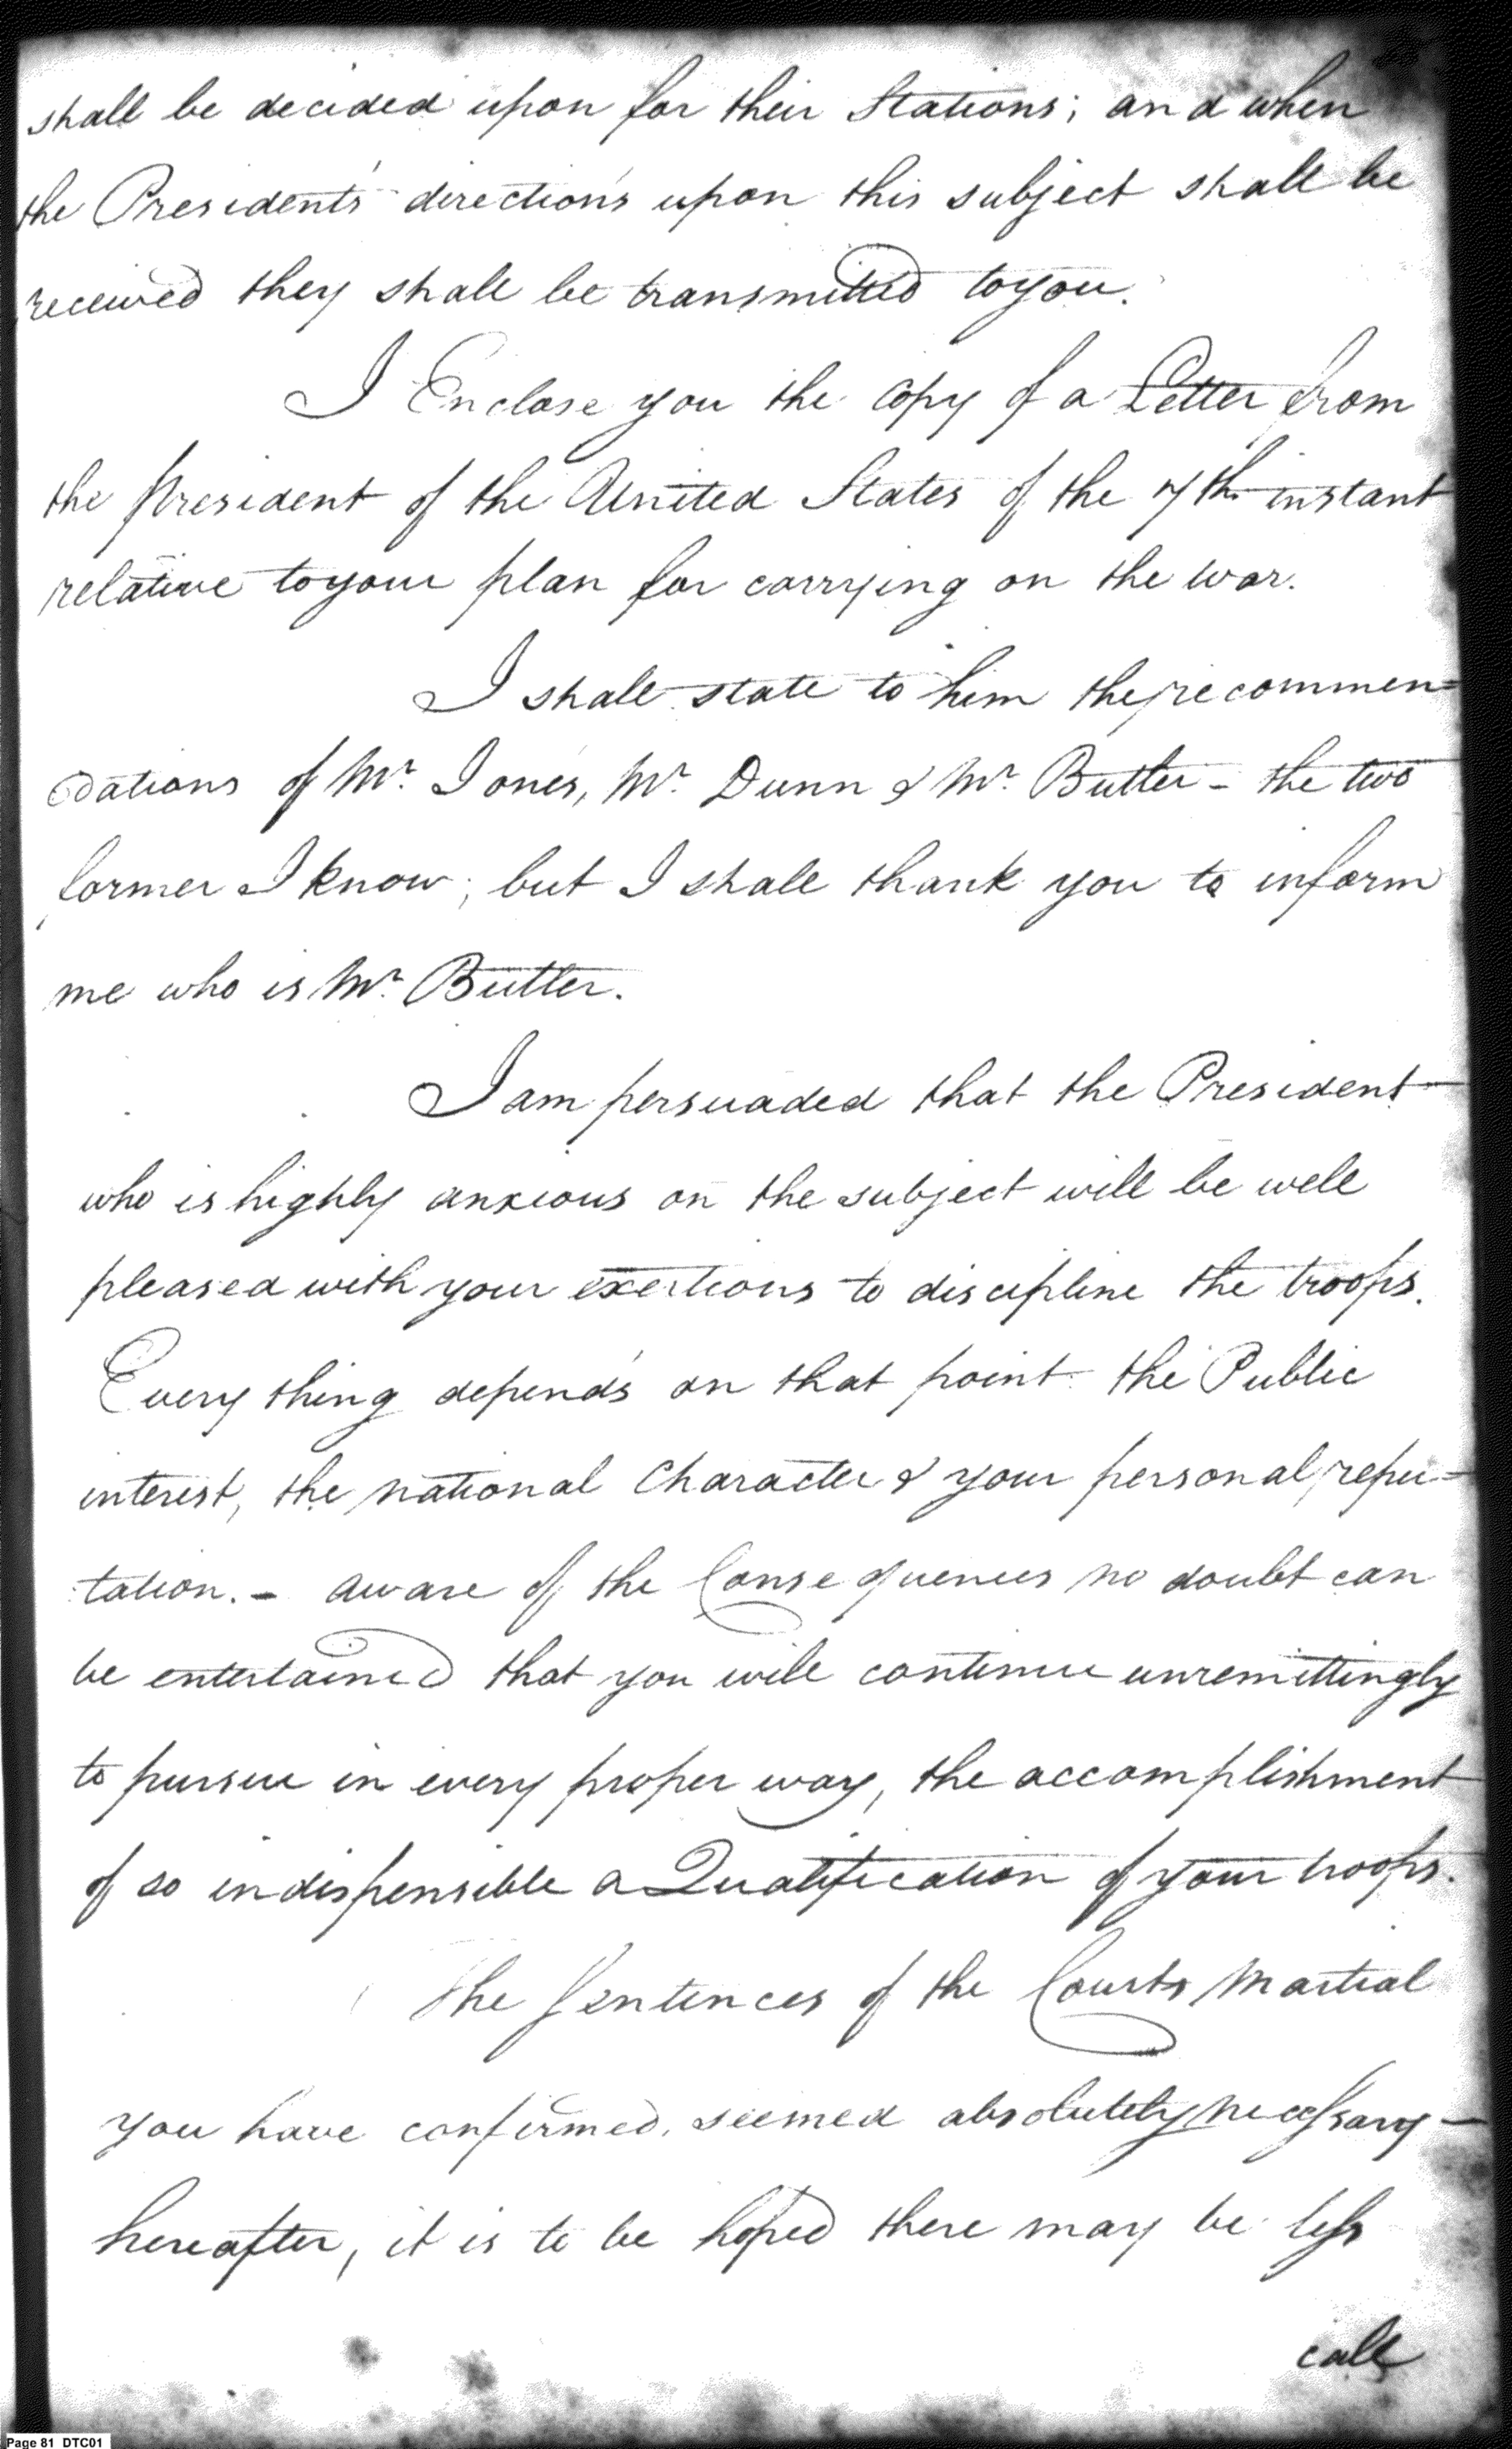 shall be decided upon for their Stations; and when
the President's directions upon this subject shall be
received they shall be transmitted to you.
I Enclose you the copy of a Letter from
the President of the United States of the 7th instant
relative to your plan for carrying on the war.
I shall state to him the recommen=
dations of Mr. Jones, Mr. Dunn & Mr. Butler - the two
former I know; but I shall thank you to inform
me who is Mr. Butler.
I am persuaded that the President
who is highly anxious on the subject will be well
pleased with your exertions to discipline the troops.
Every thing depends on that point the Public
interest, the national Character & your personal repu=
tation. - aware of the Consequences no doubt can
be entertained that you will continue unremittingly
to pursue in every proper way, the accomplishment
of so indispensible a Qualification of your troops.
The Sentences of the Courts Martial
you have confirmed, seemed absolutely necessary -
hereafter, it is to be hoped there may be less
call
Page 81 DTC01